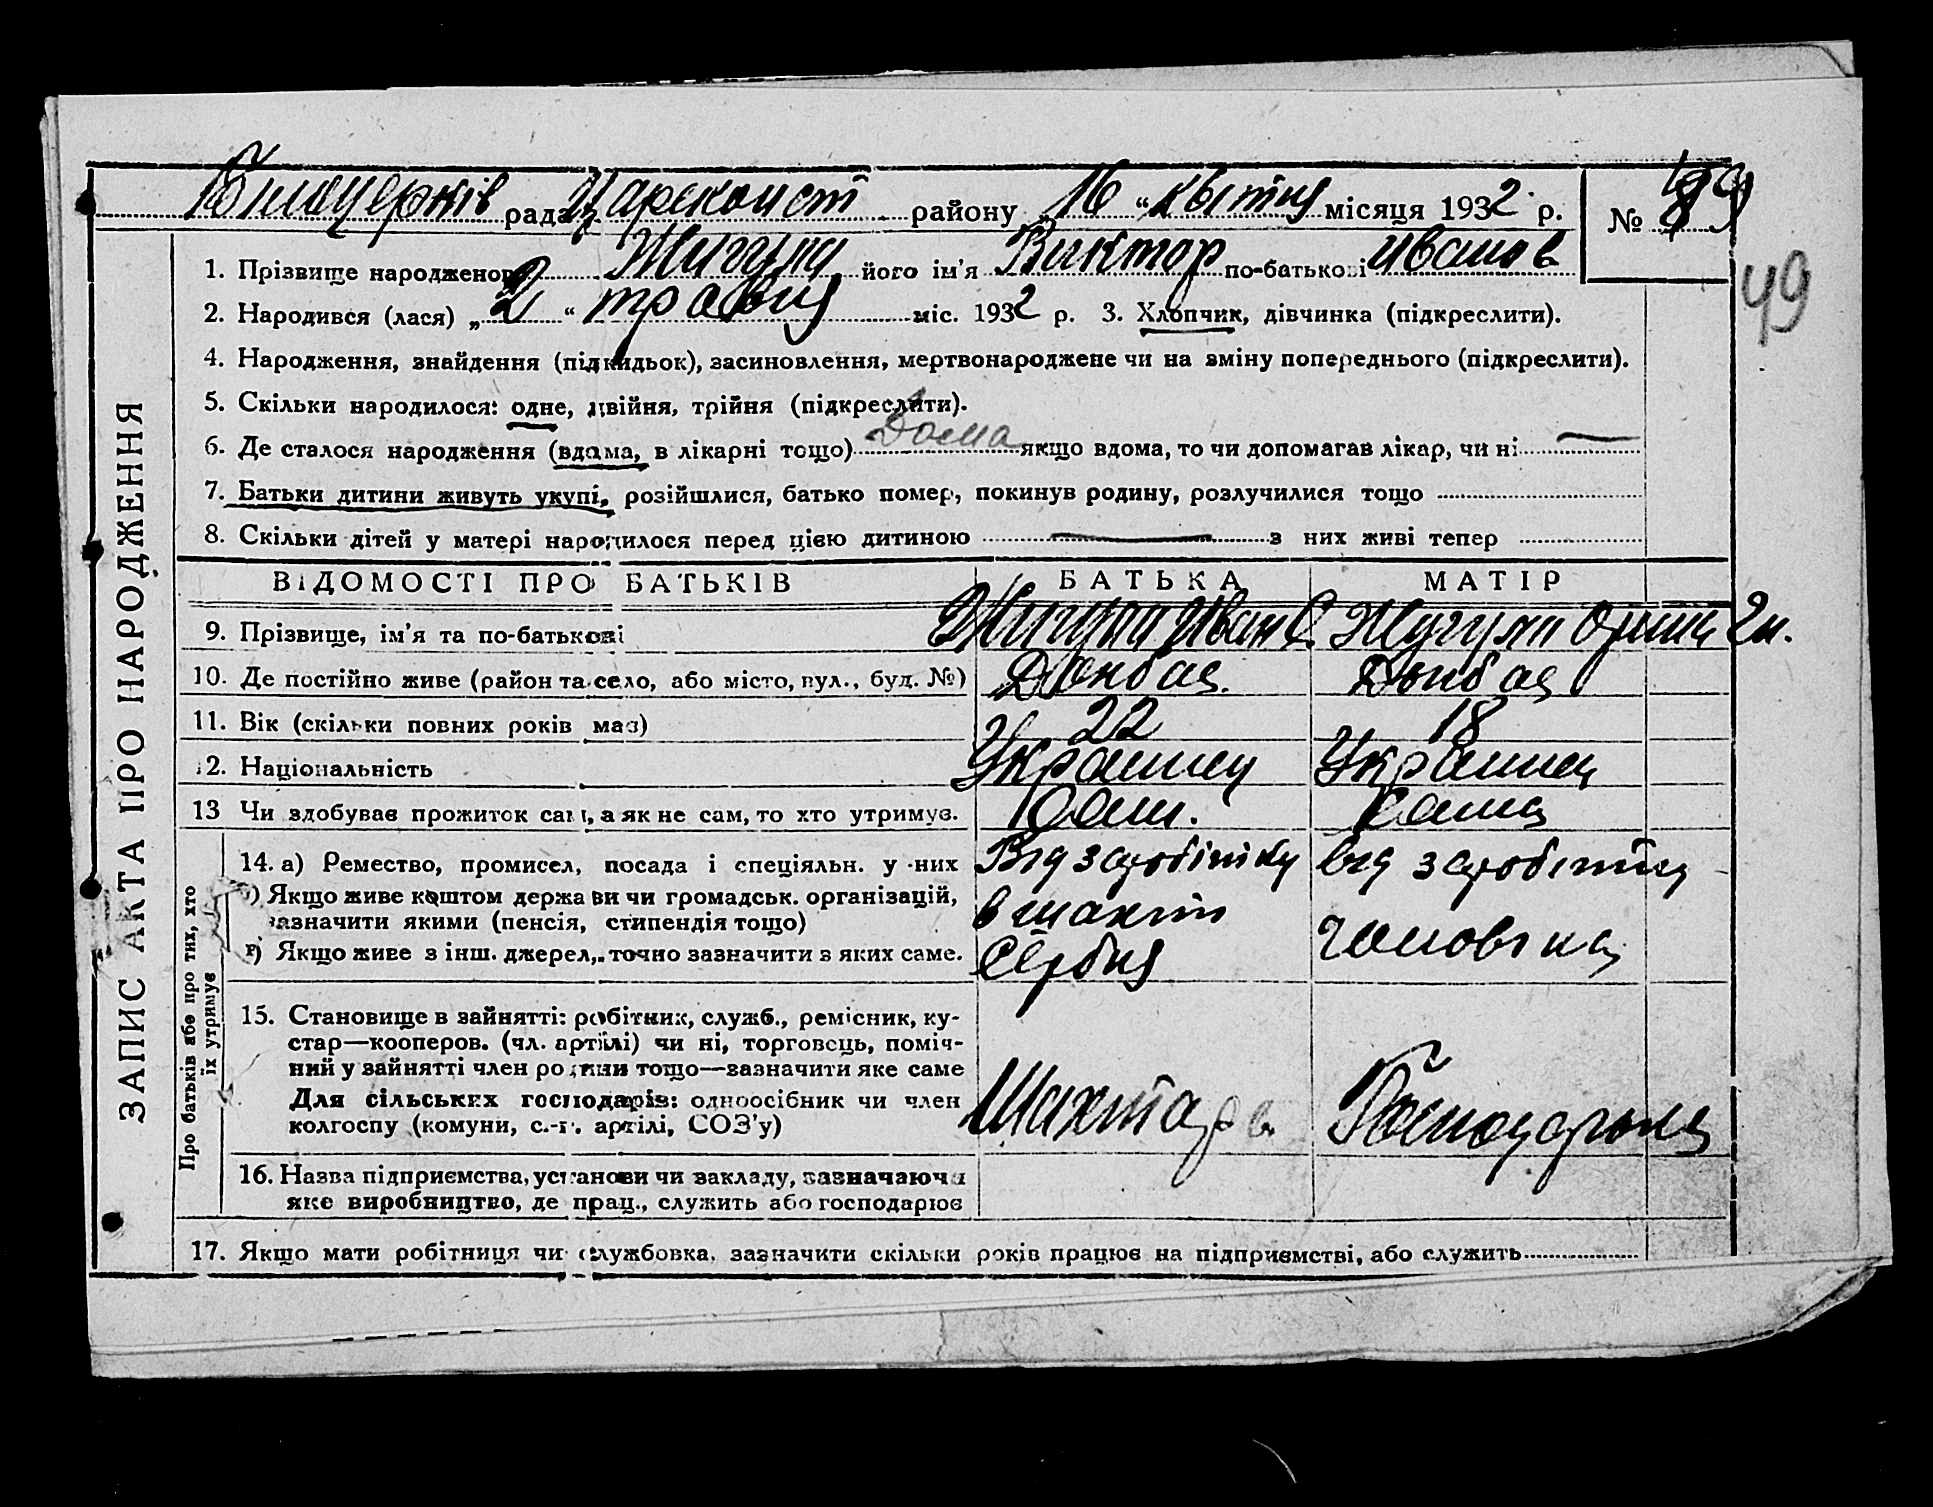 рада району „16“ квітня місяця 1932 р. № 89
49
ЗАПИС АКТА ПРО НАРОДЖЕННЯ
1. Прізвище народженого Жигула його ім'я Виктор по-батькові Иванов
2. Народився (лася) „2“ травня міс. 1932 р. 3. Хлопчик, дівчинка (підкреслити).
4. Народження, знайдення (підкидьок), засиновлення, мертвонароджене чи на зміну попереднього (підкреслити).
5. Скільки народилося: одне, двійня, трійня (підкреслити).
6. Де сталося народження (вдома, в лікарні тощо) Дома якщо вдома, то чи допомагав лікар, чи ні —
7. Батьки дитини живуть укупі, розійшлися, батько помер, покинув родину, розлучилися тощо
8. Скільки дітей у матері народилося перед цією дитиною — з них живі тепер
ВІДОМОСТІ ПРО БАТЬКІВ БАТЬКА МАТІР
9. Прізвище, ім'я та по-батькові Жигула Иван С. Жугула
10. Де постійно живе (район та село, або місто, вул., буд. №) Донбас. Донбас
11. Вік (скільки повних років має) 22 18
12. Національність Украинец Украинец
13 Чи здобуває прожиток сам, а як не сам, то хто утримує. Сам. Сама
Про батьків або про тих, хто їх утримує
14. а) Ремество, промисел, посада і спеціяльн. у них Від заробітку від заробітку
б) Якщо живе коштом держави чи громадськ. організацій,
зазначити якими (пенсія, стипендія тощо) в шахті чоловіка
в) Якщо живе з інш. джерел, точно зазначити з яких саме.
15. Становище в зайнятті: робітник, служб., ремісник, ку-
стар—кооперов. (чл. артілі) чи ні, торговець, поміч-
ний у зайнятті член родини тощо—зазначити яке саме
Для сільських господарів: одноосібник чи член
колгоспу (комуни, с.-г. артілі, СОЗ'у) Шахтарь Господарька
16. Назва підприємства, установи чи закладу, зазначаючи
яке виробництво, де прац., служить або господарює
17. Якщо мати робітниця чи службовка, зазначити скільки років працює на підприємстві, або служить